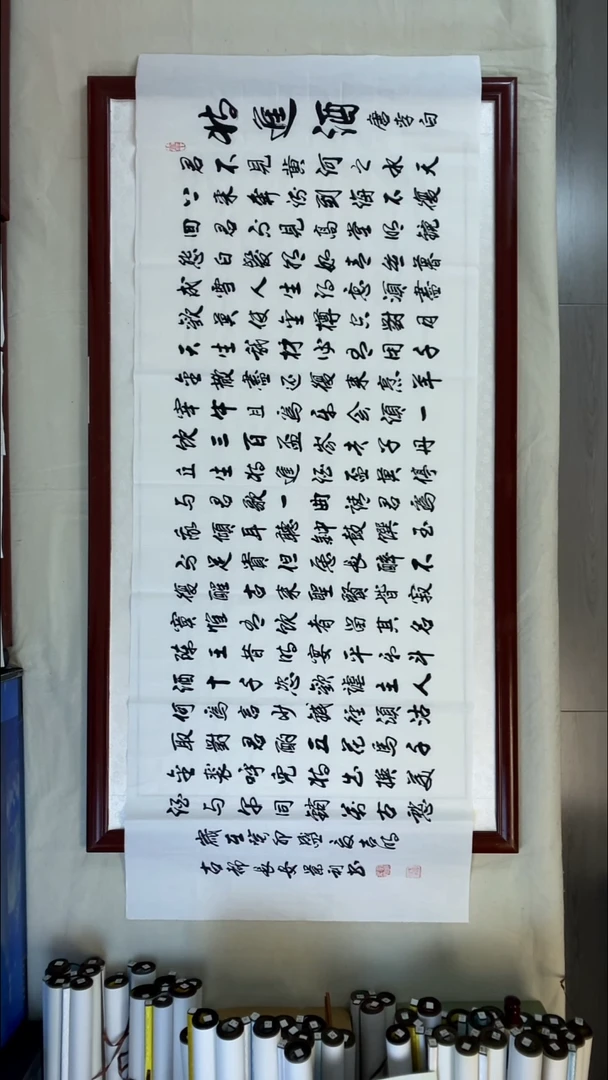 将進酒 唐李白
君不見黄河之水天
上来奔流到海不復
回君不見高堂明鏡
悲白髮朝如青丝暮
成雪人生得意須盡
歓莫使金樽空對月
天生我材必有用千
金散盡还復来烹羊
宰牛且為乐会須一
饮三百盃岑夫子丹
丘生将進酒盃莫停
与君歌一曲請君為
我傾耳聽钟鼓饌玉
不足貴但愿長醉不
復醒古来聖賢皆寂
寞惟有饮者留其名
陳王昔時宴平乐斗
酒十千恣歓謔主人
何為言少錢径須沽
取對君酌五花馬千
金裘呼兒将出換美
酒与尔同銷萬古愁
歲在癸卯盛夏吉時
長安景利书